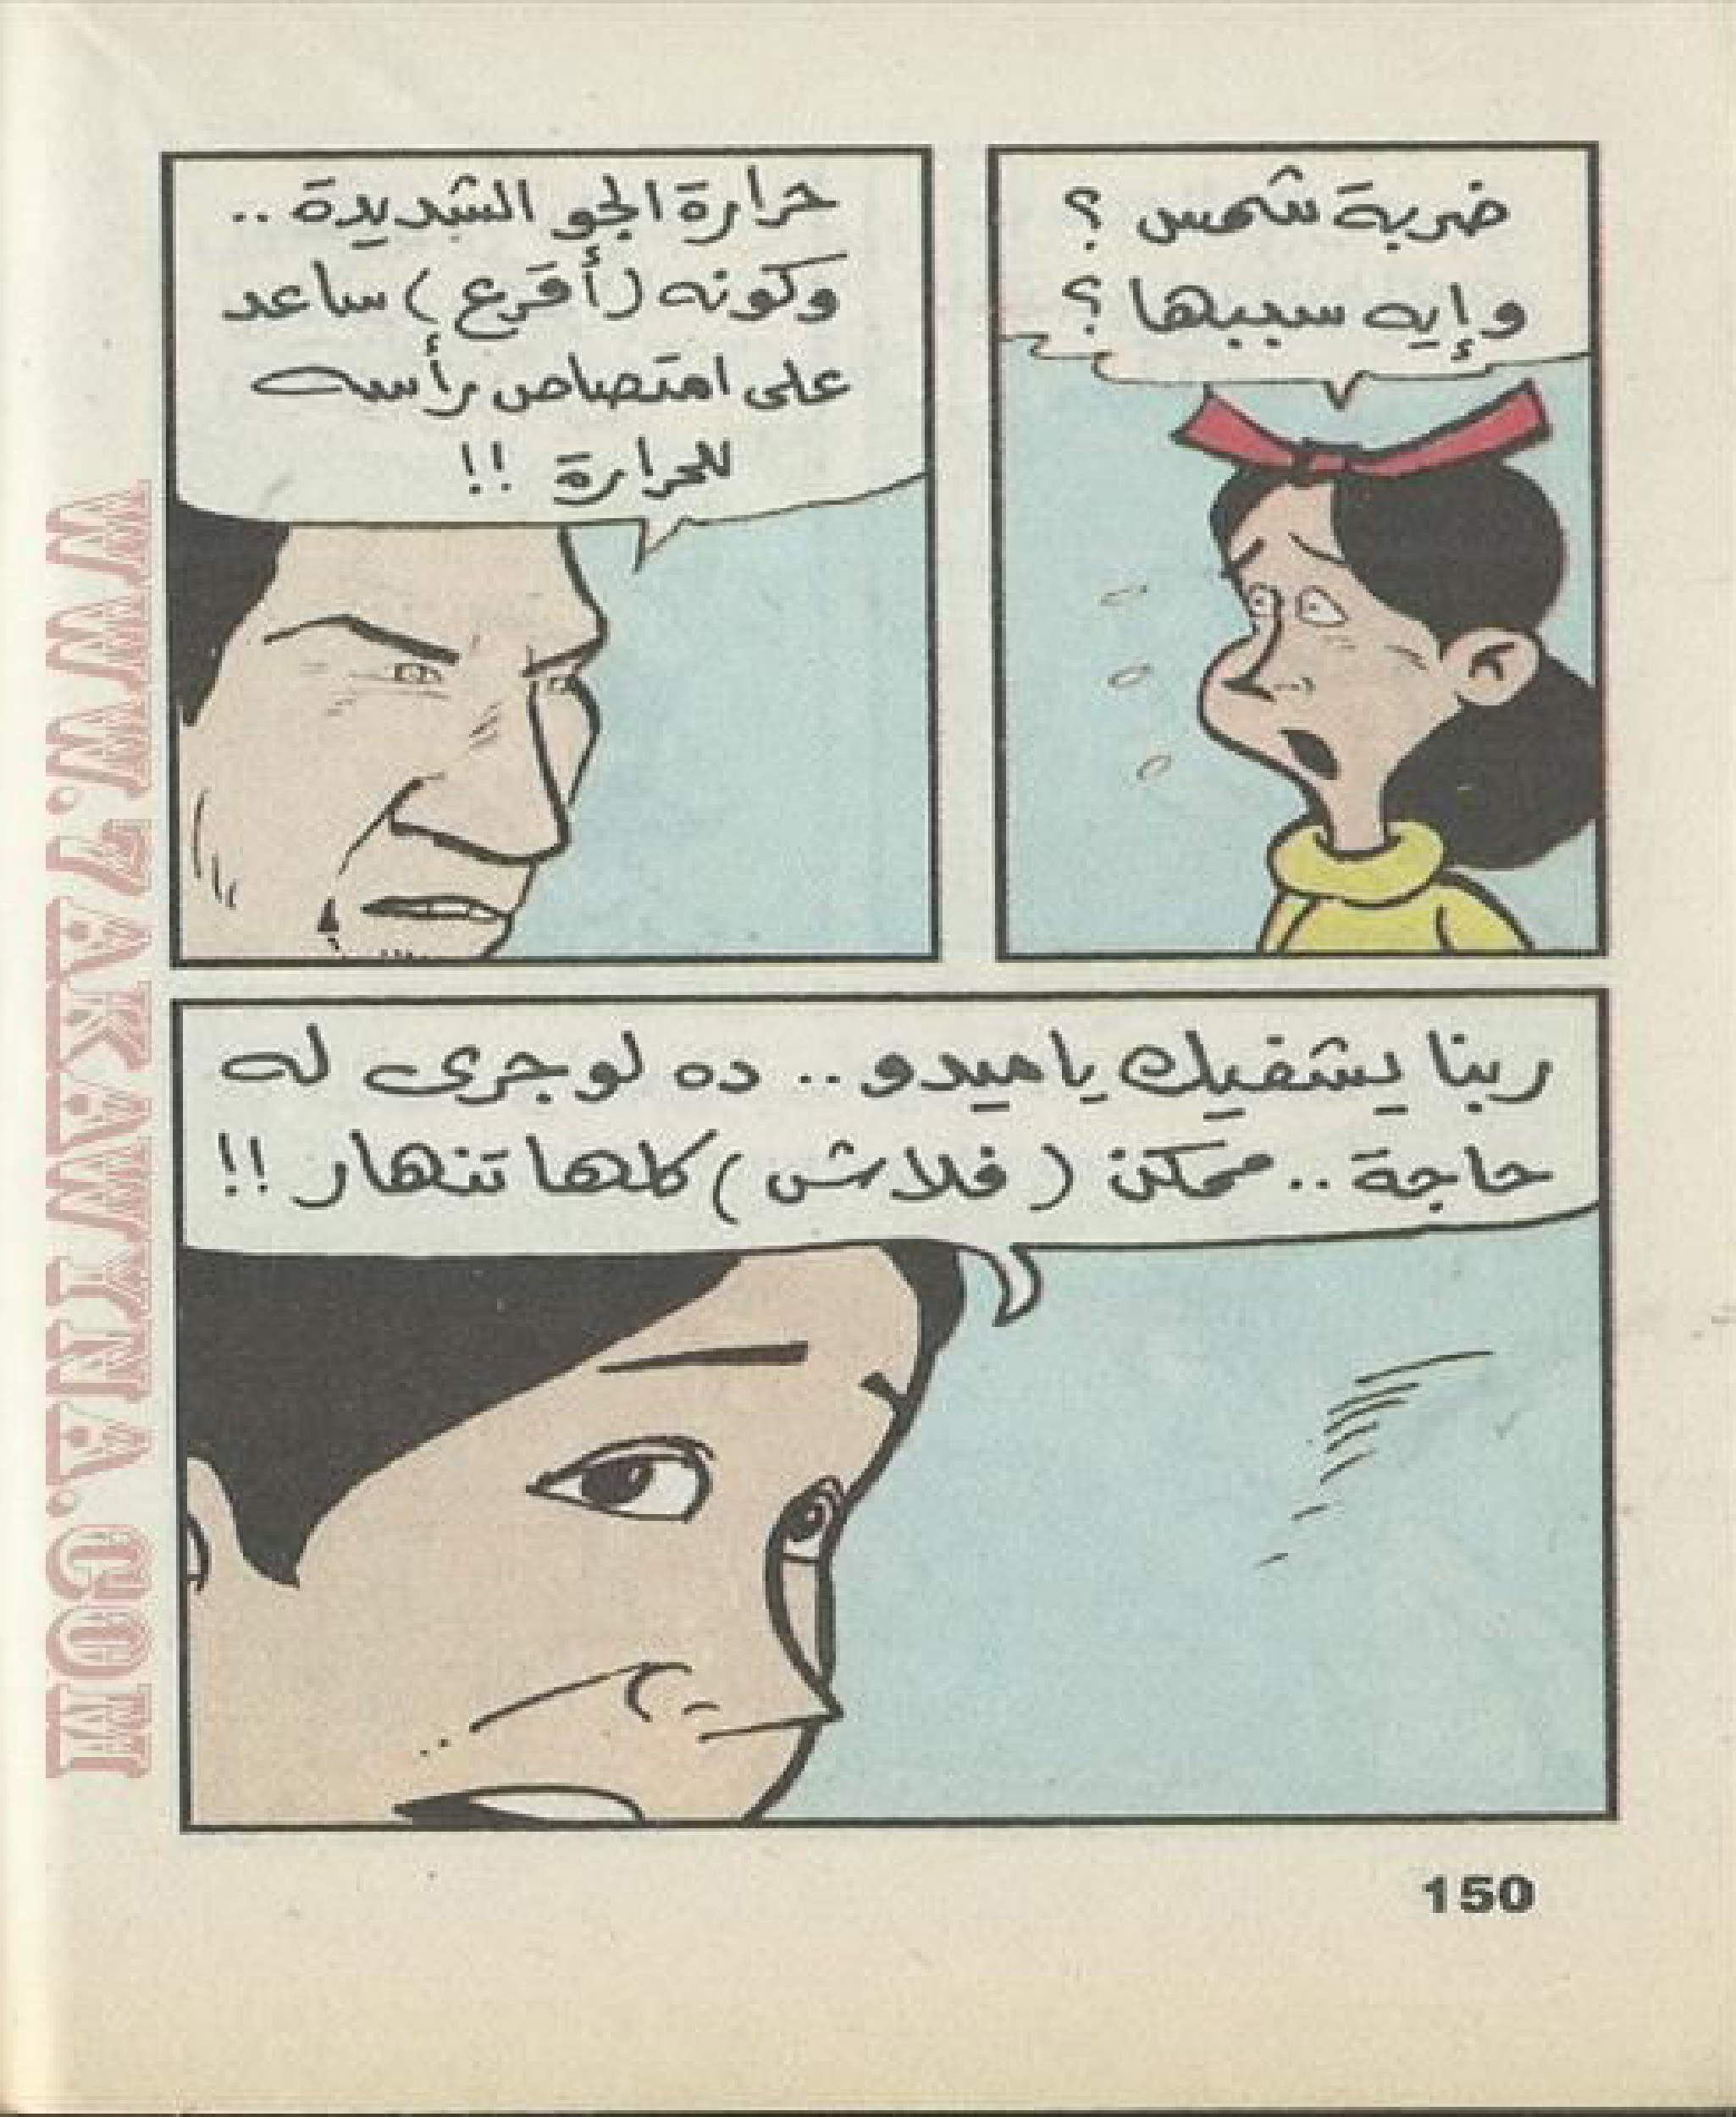 ضربة شمس ؟
وإيه سببها ؟
حرارة الجو الشديدة ..
وكونه (أقرع) ساعد
على امتصاص رأسه
للحرارة !!
ربنا يشفيك يا ميدو .. ده لو جرى له
حاجة .. ممكن (فلاش) كلها تنهار !!
150
WWW.7AKAWITNA.COM